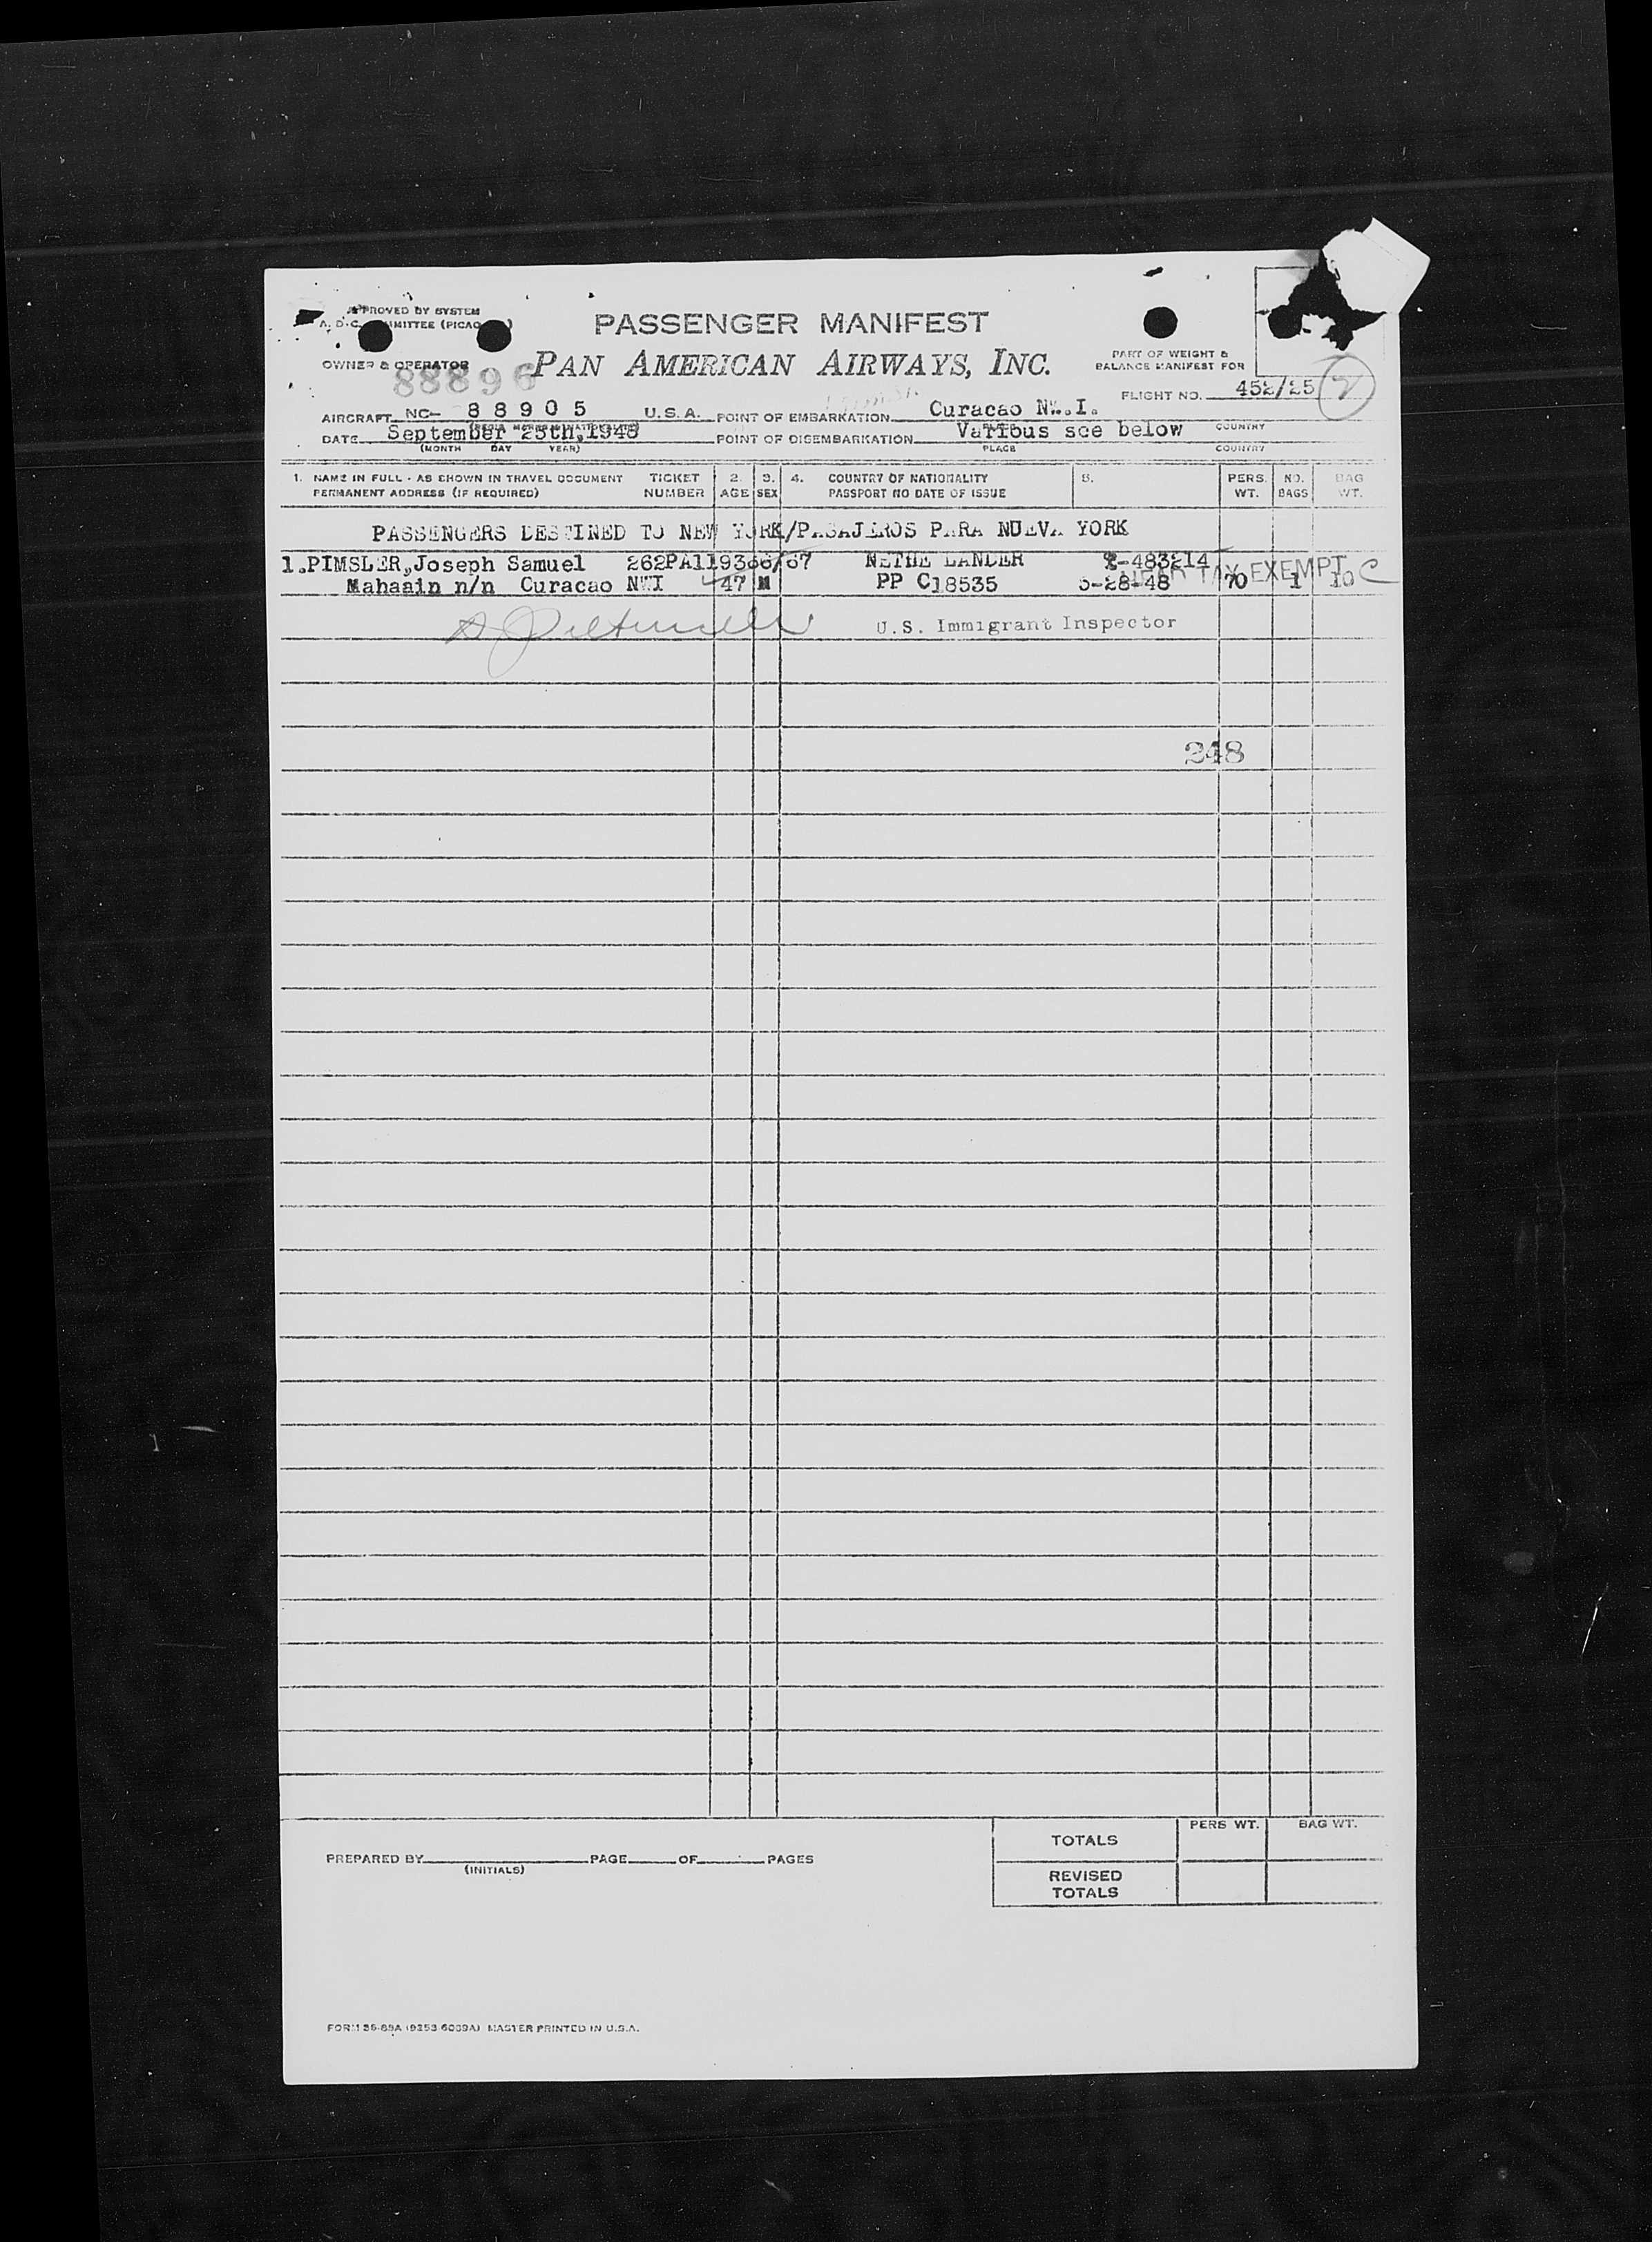 APPROVED BY SYSTEM
PASSENGER MANIFEST
OWNER & OPERATOR
PAN AMERICAN AIRWAYS, INC.
PART OF WEIGHT &
BALANCE MANIFEST FOR
88896
FLIGHT NO. 452/25 2
AIRCRAFT NC- 88905 U.S.A. POINT OF EMBARKATION Curacao N.W.I.
DATE September 25th,1948 POINT OF DISEMBARKATION Various see below COUNTRY
(MONTH DAY YEAR) PLACE COUNTRY
1. NAME IN FULL - AS SHOWN IN TRAVEL DOCUMENT TICKET 2. 3. 4. COUNTRY OF NATIONALITY 5. PERS. NO. BAG
PERMANENT ADDRESS (IF REQUIRED) NUMBER AGE SEX PASSPORT NO DATE OF ISSUE WT. BAGS WT.
PASSENGERS DESTINED TO NEW YORK/PASAJEROS PARA NUEVA YORK
1.PIMSLER,Joseph Samuel 262PA119366/67 NETHE LANDER -483214
HEAD TAX EXEMPT C
Mahaain n/n Curacao NWI 47 M PP C18535 -28-48 70 1 10
U.S. Immigrant Inspector
248
PERS WT. BAG WT.
TOTALS
PREPARED BY PAGE OF PAGES
(INITIALS)
REVISED
TOTALS
MASTER PRINTED IN U.S.A.